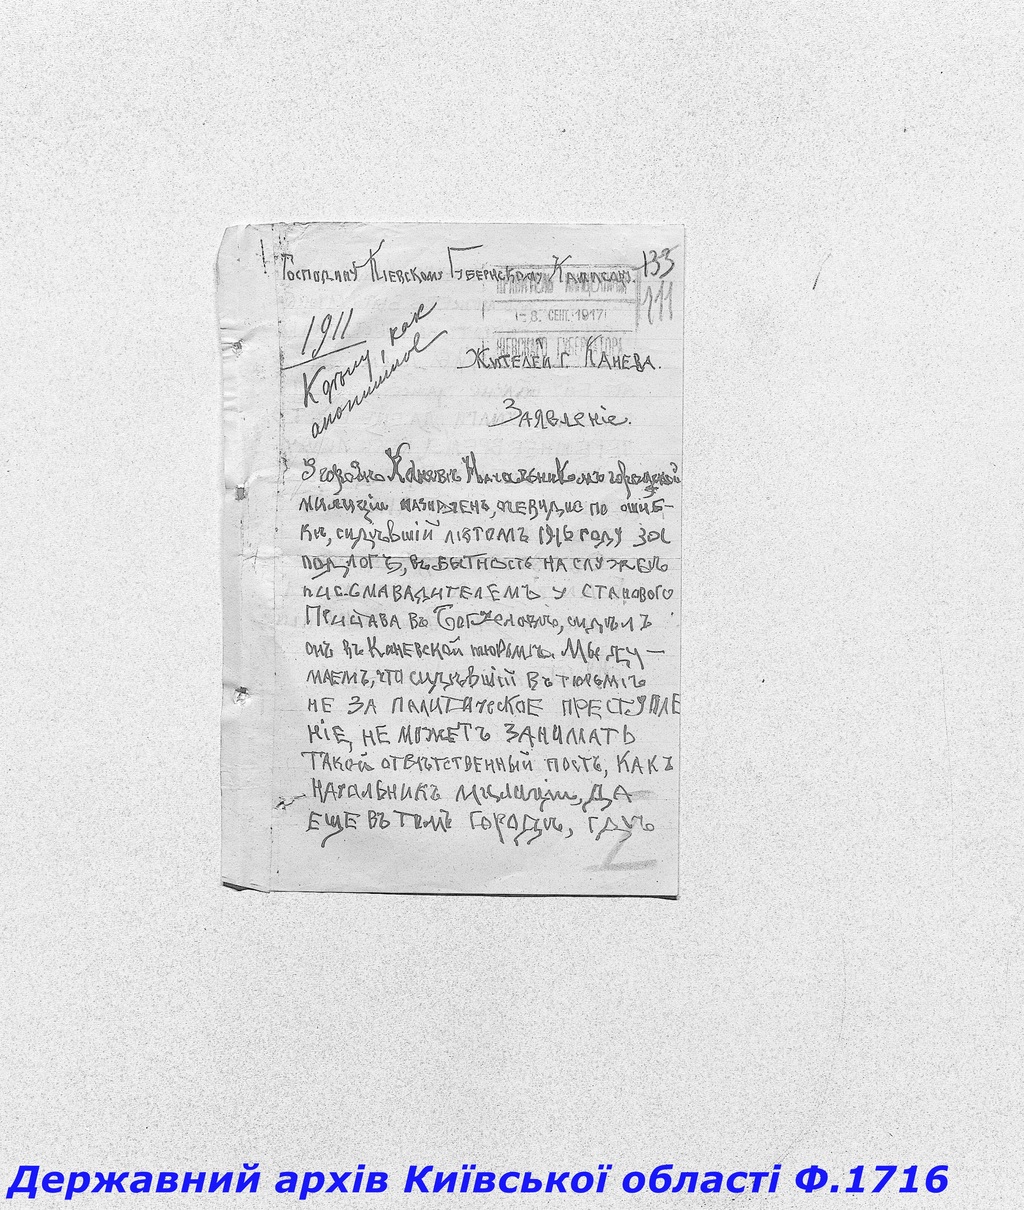 Господину Кіевскому Губернскому Комисару.
133
111
-8. СЕН. 1917
КІЕВСКОГО ГУБЕРНАТОРА
1911
К дѣлу, как
анонимное
Жителей г. Канева.
Заявленіе.
В городѣ Каневѣ Начальникомъ городской
милиціи назначенъ, очевидно по ошиб-
кѣ, сидѣвшій лѣтомъ 1916 году за
подлогъ, въ бытность на службѣ
писмавадителемъ у станового
Пристава въ Богуславѣ, сидѣлъ
онъ въ Каневской тюрьмѣ. Мы ду-
маемъ, что сидѣвшій въ тюрьмѣ
не за палитическое преступле
ніе, не можетъ занимать
такой отвѣтственный постъ, какъ
начальникъ милиціи, да
еще въ томъ городѣ, гдѣ
Державний архів Київської області Ф.1716